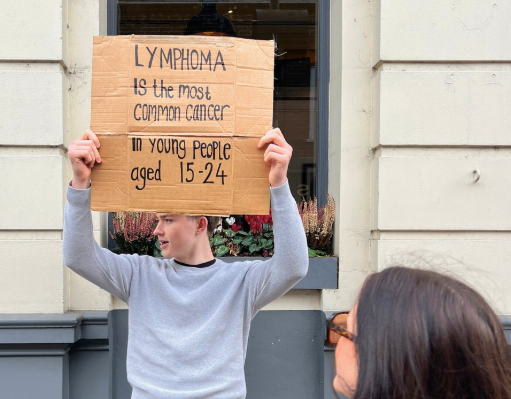 LYMPHOMA
is the most
common cancer
in young people
aged 15-24